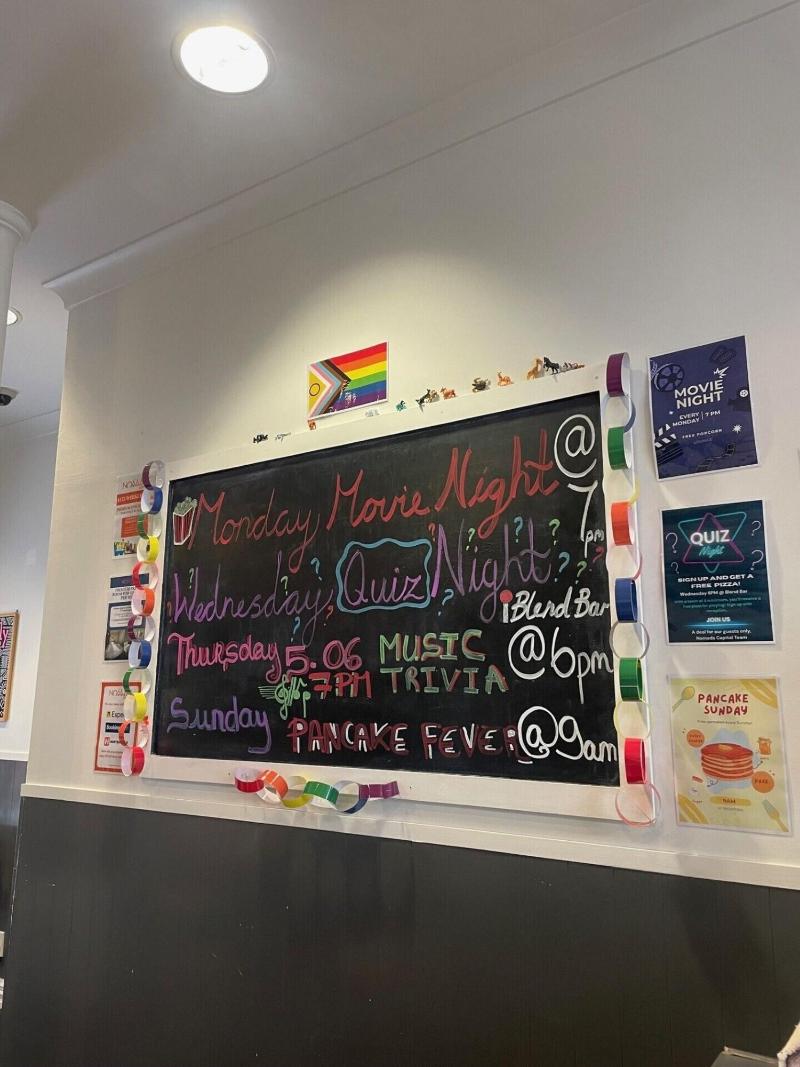 Monday Movie Night @
7
pm
Wednesday Quiz Night
Blend Bar
@6pm
Thursday 5.06 MUSIC
7PM TRIVIA
Sunday PANCAKE FEVER @9am
MOVIE
NIGHT
EVERY
MONDAY 7 PM
FREE POPCORN
QUIZ
Night
SIGN UP AND GET A
FREE PIZZA!
Wednesday 6PM @ Blend Bar
JOIN US
A deal for our guests only,
Nomads Capital Team
PANCAKE
SUNDAY
9AM